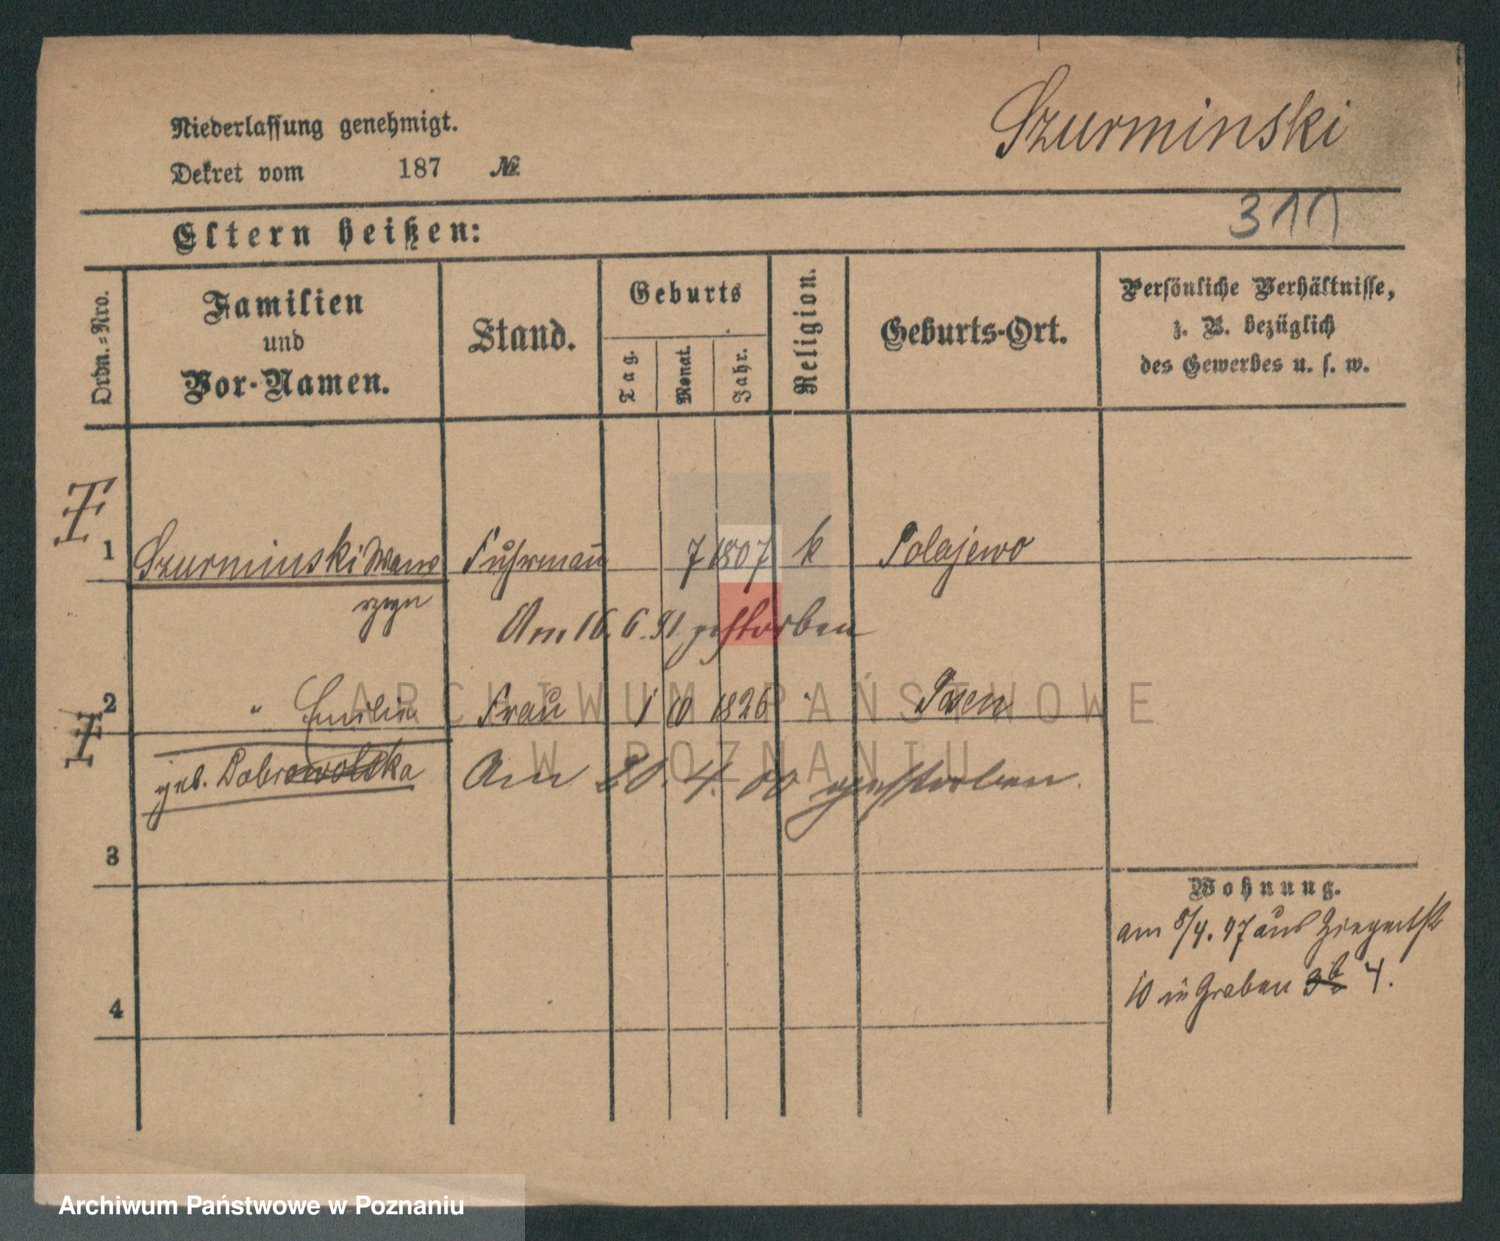 Szurminski
Niederlassung genehmigt.
Dekret vom 187 №
311
Eltern heißen:
Ordn.=Nro.
Familien und Vor-Namen.
Stand.
Geburts
Tag.
Monat.
Jahr.
Religion.
Geburts-Ort.
Persönliche Verhältnisse,
z. B. bezüglich
des Gewerbes u. s. w.
1 Szurminski Waw Fuhrmann 7 1807 k Polajewo
rzyn
Am 16. 6. 91 gestorben
2 " Emilie Frau 1 10 1826 " Posen
geb. Dobrowolska Am 20. 4. 00 gestorben.
3
Wohnung.
am 8/4. 97 aus
10 in Graben 4.
4
ARCHIWUM PAŃSTWOWE
W POZNANIU
Archiwum Państwowe w Poznaniu